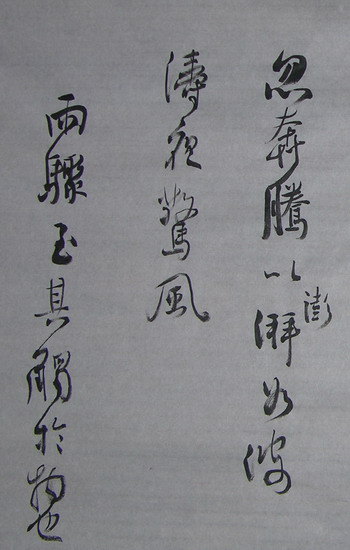 忽奔騰以澎湃如波
濤夜驚風
雨驟至其觸於物也